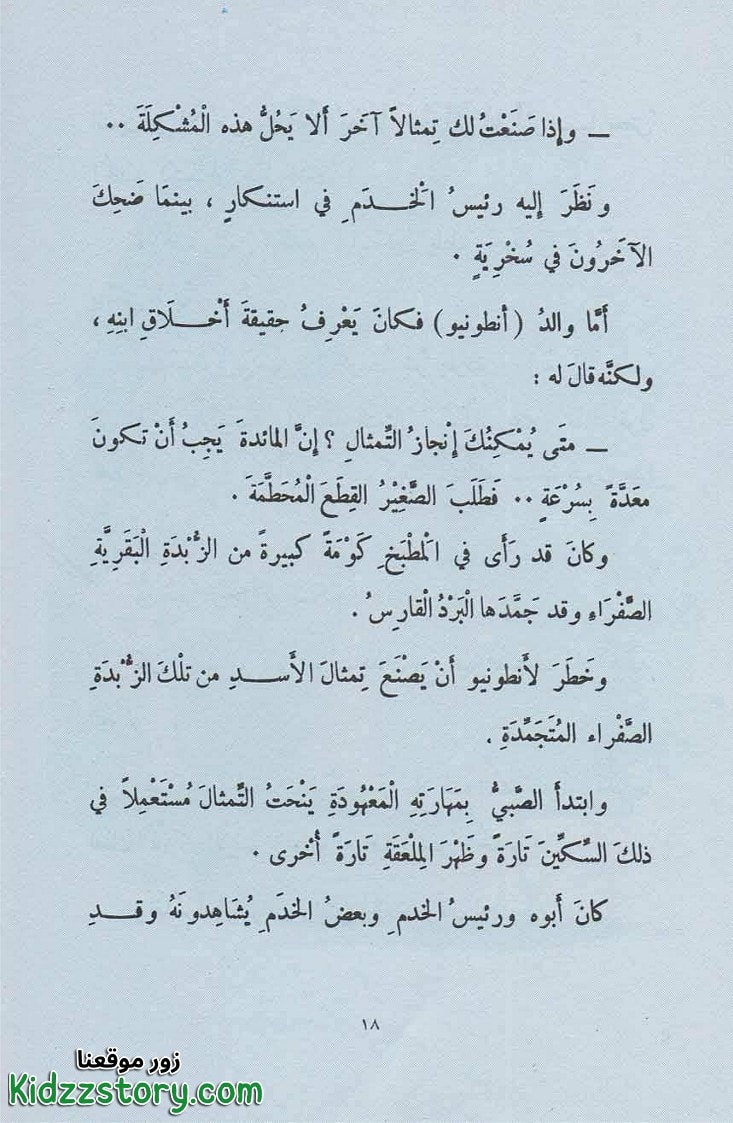 ــ وإذا صَنَعْتُ لك تِمثالاً آخَرَ ألا يَحُلُّ هذه الْمُشْكِلَةَ ..
ونَظَرَ إليه رئيسُ الْخَدَمِ في استنكارٍ ، بينمَا ضَحِكَ
الآخَرُونَ في سُخْرِيَةٍ .
أمَّا والدُ (أنطونيو) فكانَ يَعْرِفُ حقيقةَ أخْلَاقِ ابنِهِ ،
ولكنَّه قالَ له :
ــ متَى يُمْكِنُكَ إنْجازُ التِّمثالِ ؟ إنَّ المائدةَ يَجِبُ أنْ تكونَ
معَدَّةً بِسُرْعَةٍ .. فَطَلَبَ الصَّغِيْرُ القِطَعَ الْمُحَطَّمَةَ .
وكانَ قد رَأَى في الْمَطْبَخِ كَوْمَةً كبيرةً من الزُّبْدَةِ الْبَقَرِيَّةِ
الصَّفْرَاءِ وقد جَمَّدَها الْبَرْدُ الْقَارِسُ .
وخَطَرَ لأنطونيو أنْ يَصْنَعَ تِمثالَ الأسدِ من تلْكَ الزُّبْدَةِ
الصَّفْراء المُتَجَمِّدَةِ .
وابتدأَ الصَّبيُّ بِمَهَارَتِهِ الْمَعْهُودَةِ يَنْحَتُ التِّمثالَ مُسْتَعْمِلاً في
ذلكَ السِّكِّينَ تَارَةً وظَهْرَ المِلْعَقَةِ تَارَةً أُخْرى .
كانَ أبوه ورئيسُ الخدمِ وبعضُ الخدَمِ يُشَاهِدونَهُ وقد
١٨
زور موقعنا
Kidzzstory.com